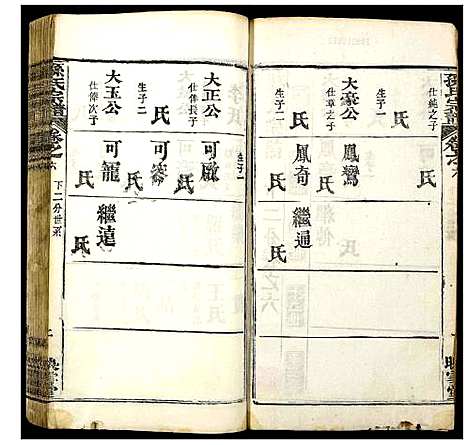 孫氏宗譜
卷之六
仕純之子
生子一
氏
大豪公
仕章之子
生子二
氏
鳳鸞
鳳奇
氏
繼通
映雪堂
生子一
大正公
仕俸長子
生子二
氏
大玉公
仕俸次子
生子二
氏
可啟
可容
氏
可寵
氏
氏
繼遠
孫氏宗譜
卷之六
下二分世系
映雪堂